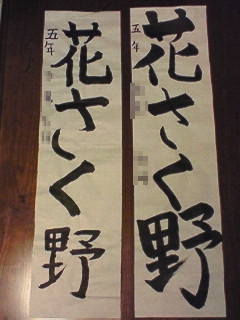 花さく野
五年
花さく野
五年